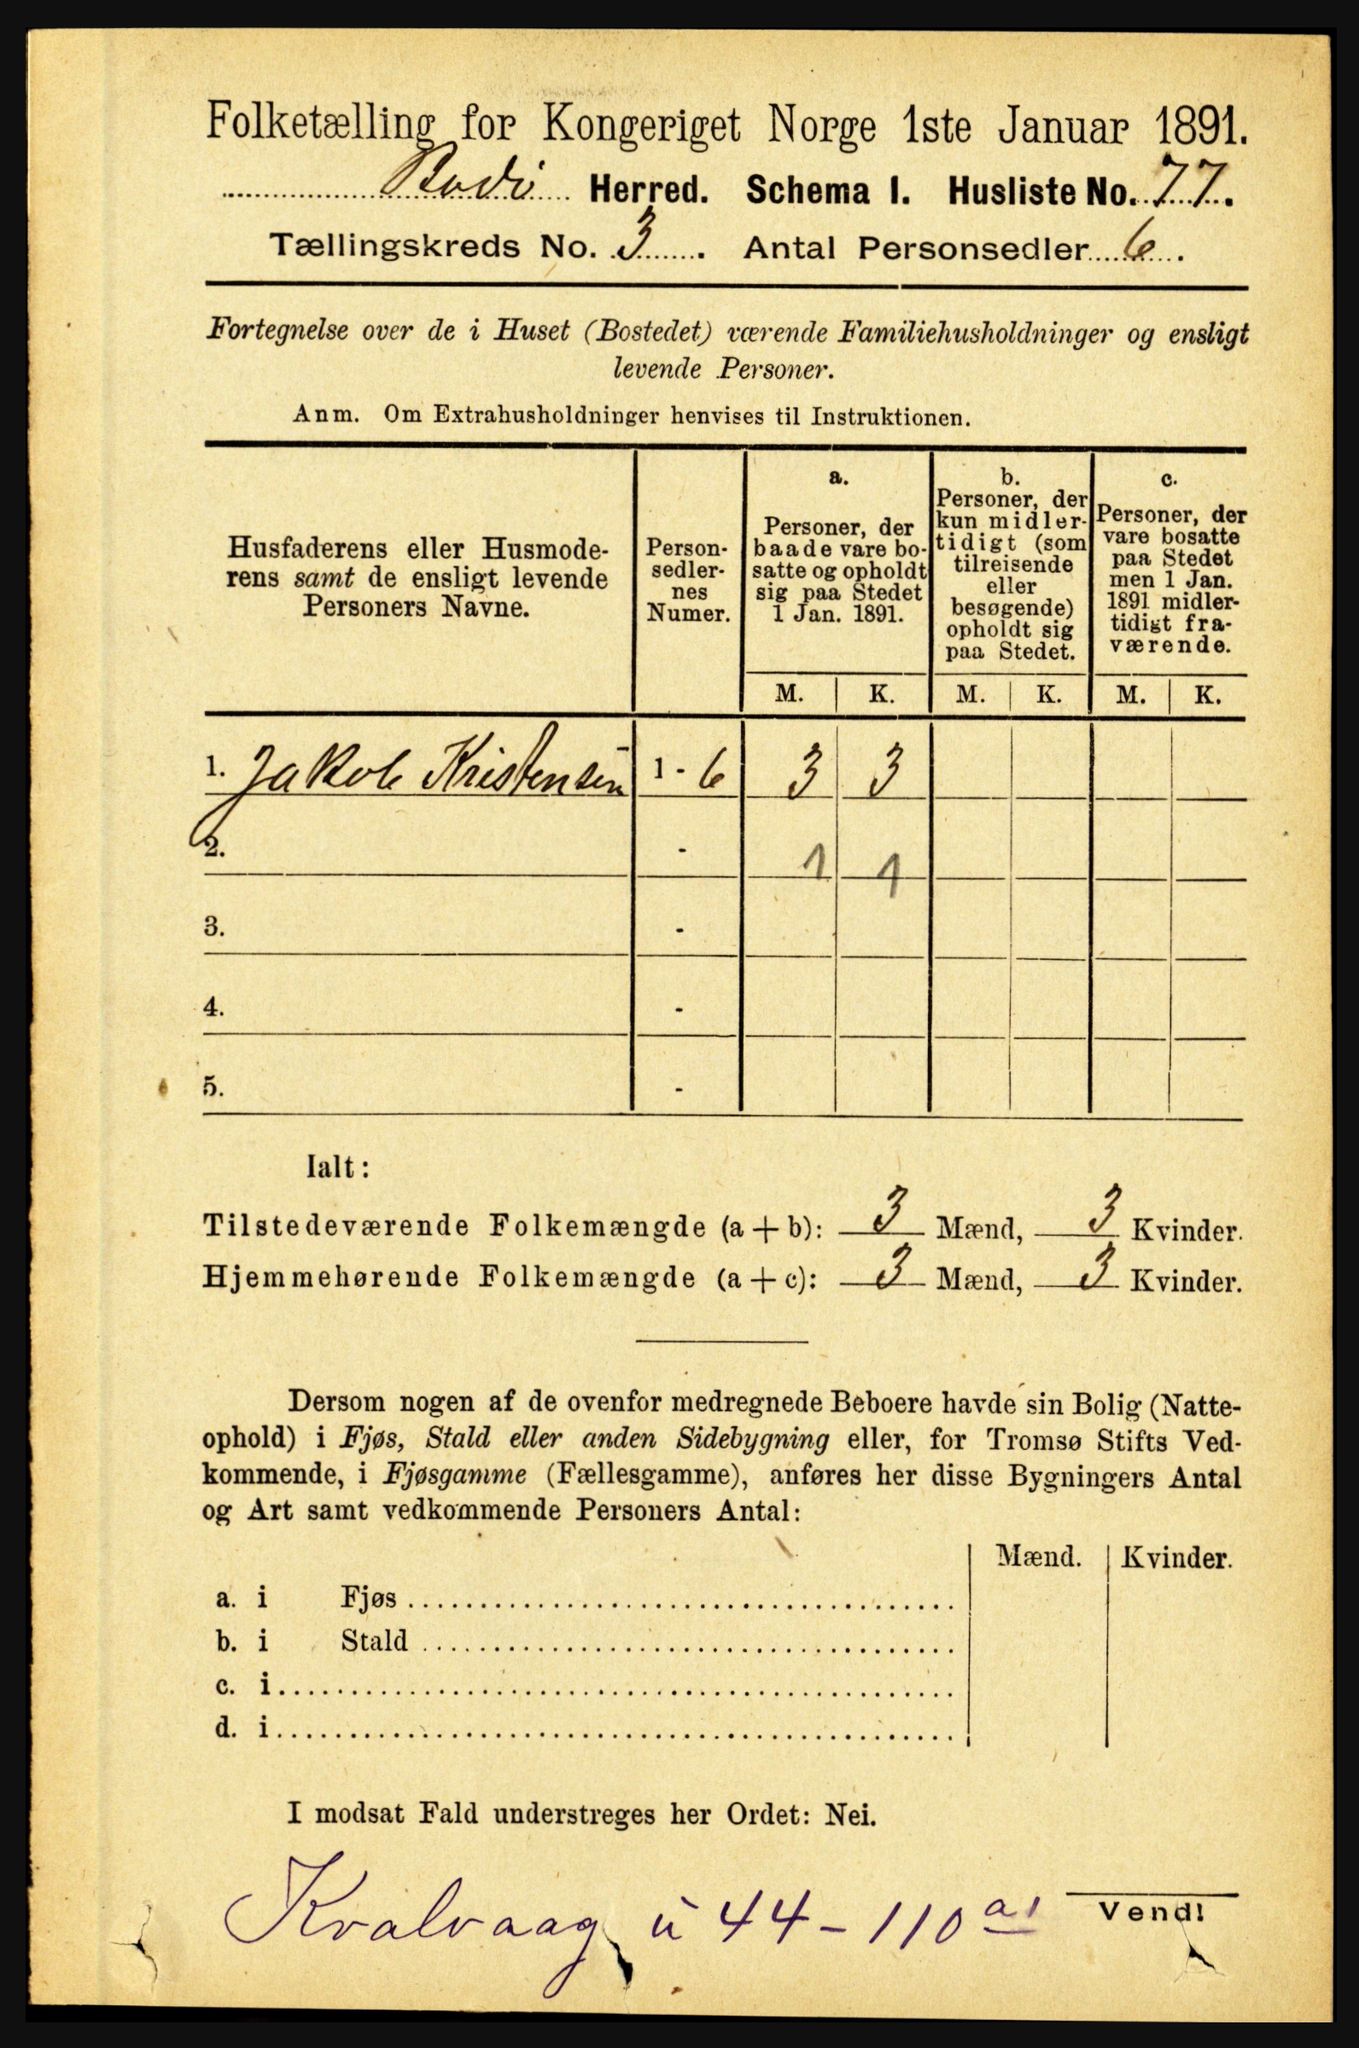 Folketælling for Kongeriget Norge 1ste Januar 1891.
Herred. Schema I. Husliste No. 77.
Tællingskreds No. 3. Antal Personsedler 6.
Fortegnelse over de i Huset (Bostedet) værende Familiehusholdninger og ensligt
levende Personer.
Anm. Om Extrahusholdninger henvises til Instruktionen.
Husfaderens eller Husmode-
rens samt de ensligt levende
Personers Navne.
Person-
sedler-
nes
Numer.
a.
Personer, der
baade vare bo-
satte og opholdt
sig paa Stedet
1 Jan. 1891.
b.
Personer, der
kun midler-
tidigt (som
tilreisende
eller
besøgende)
opholdt sig
paa Stedet.
c.
Personer, der
vare bosatte
paa Stedet
men 1 Jan.
1891 midler-
tidigt fra-
værende.
M. K. M. K. M. K.
1. Jakob Kristensen 1 - 6 3 3
2. - 1 1
3. -
4. -
5. -
Ialt:
Tilstedeværende Folkemængde (a + b): 3 Mænd, 3 Kvinder.
Hjemmehørende Folkemængde (a + c): 3 Mænd, 3 Kvinder.
Dersom nogen af de ovenfor medregnede Beboere havde sin Bolig (Natte-
ophold) i Fjøs, Stald eller anden Sidebygning eller, for Tromsø Stifts Ved-
kommende, i Fjøsgamme (Fællesgamme), anføres her disse Bygningers Antal
og Art samt vedkommende Personers Antal:
Mænd. Kvinder.
a. i Fjøs
b. i Stald
c. i
d. i
I modsat Fald understreges her Ordet: Nei.
Vend!
Kvalvaag u 44 - 110 a1